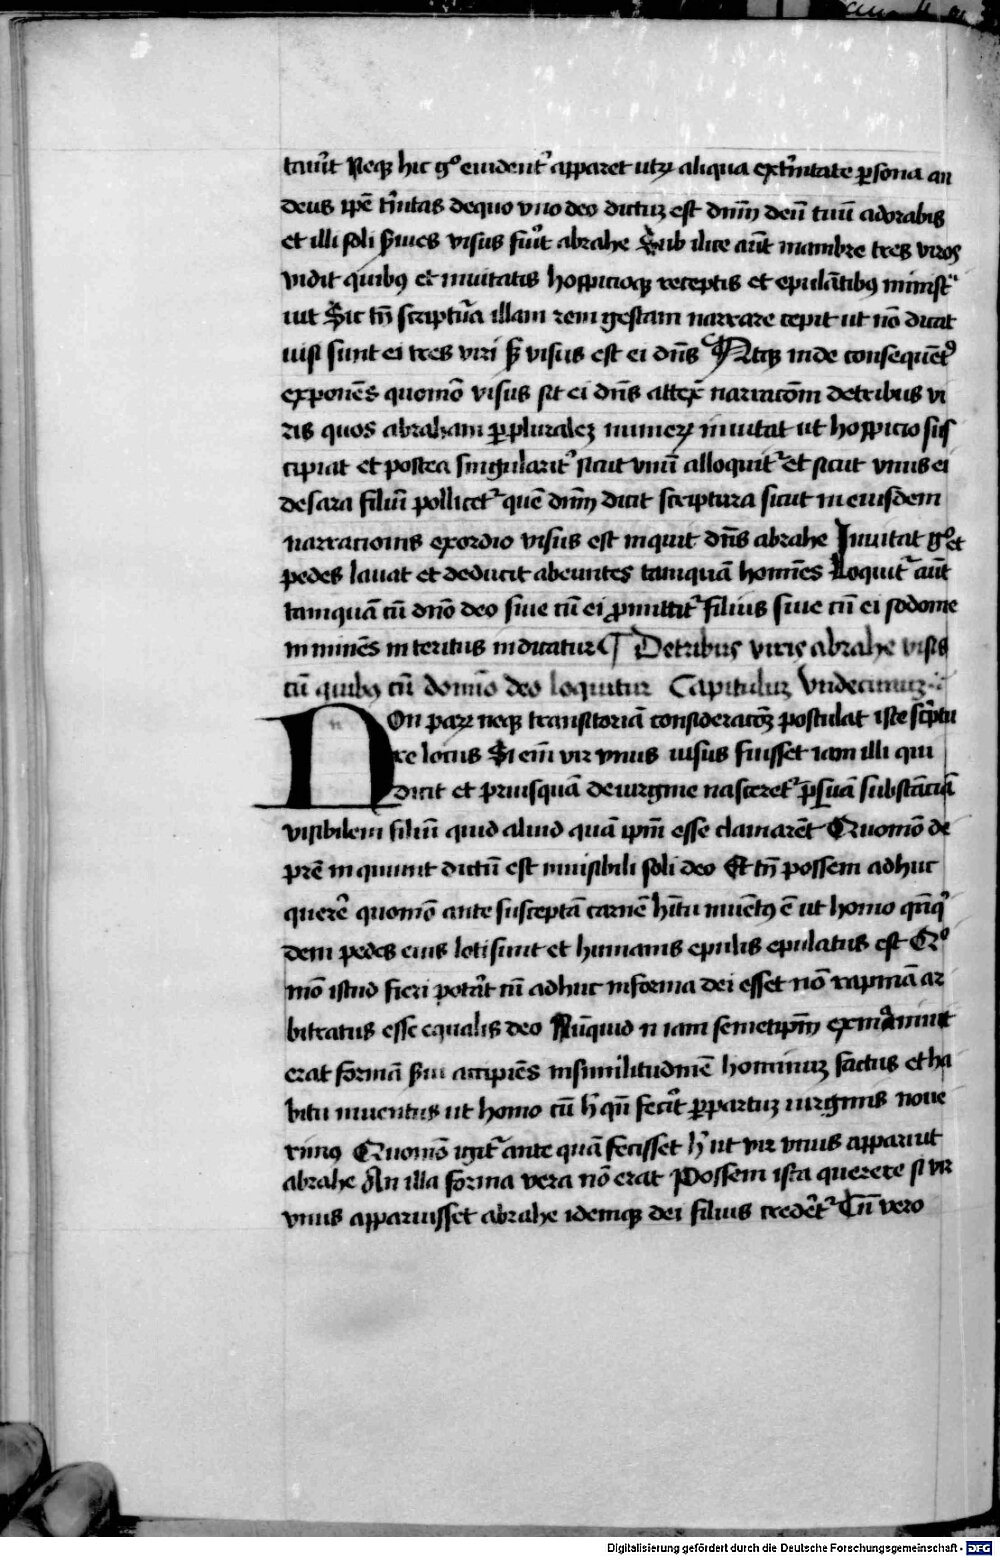 tauit̃ Neq₃ hic g̊ euident̾ apparet utꝝ aliqua ext̾nitate ꝑsona an
deus ip̃e t̾nitas dequo vno deo dictuȝ est dñm̃ deũ tuũ adorabis
et illi soli s̾uies visus fuit̃ abrahe Sub ilice aũt mambre tres viros
vidit quibꝰ et inuitatis hospicioq₃ receptis et epulãtibꝰ minist̾
uit Sic tñ scriptura illam rem gestam narrare cepit ut nõ dicat
uisi sunt ei tres viri s̾ visus est ei dñs Atq₃ inde consequent̾
exponẽs quomõ visus sit ei dñs attex̾ narracõm detribus vi
ris quos abraham ꝑ pluraleȝ numeꝝ inuitat ut hospicio sus
cipiat et postea singularit̾ sicut vnũ alloquit̾ et sicut vnus ei
desara filiũ pollicet̾ quẽ dñm̃ dicit scriptura sicut in eiusdem
narracionis exordio visus est inquit dñs abrahe Inuitat g̊ et
pedes lauat et deducit abeuntes tamquã homĩes Loquit̾ aũt
tamquã cũ dño deo siue cũ ei ꝓmittit̾ filius siue cũ ei sodome
in minẽs interitus indicatur ¶ Detribus viris abrahe visis
cũ quibꝰ cũ domĩo deo loquitur Capituluȝ Vndecimuȝ
NOn paꝝ neq₃ transitoriã consideracõȝ postulat iste script̾u
re locus Si eĩm vir vnus uisus fuisset iam illi qui
dicit et priusquã deuirgine nasceret̾ ꝑ suã substãciã
visibilem filiũ quid aliud quã ip̃m esse clamarẽt Quomõ de
pr̃e inquiunt dictũ est inuisibili soli deo Et tñ possem adhuc
querẽ quomõ ante susceptã carnẽ h̾itu inuẽtꝰ ẽ ut homo qñq̾
dem pedes eius loti sunt et humanis epulis epulatus est Q̊
mõ istud fieri potũit cũ adhuc informa dei esset nõ rapinã ar
bitratus esse equalis deo Nũquid n̾ iam semetip̃m exinaniuit
erat formã s̾ui accipiẽs insimilitudinẽ hominuȝ factus et ha
bitu inuentus ut homo cũ h̾ qñ fecit̃ ꝑ partuȝ uirginis noue
rimꝰ Quomõ igit̾ ante quã fecisset h̾ ut vir vnus apparuit
abrahe An illa forma vera nõ erat Possem ista querere si vir
vnus apparuisset abrahe idemq₃ dei filius crederet̾ Cũ vero
Digitalisierung gefördert durch die Deutsche Forschungsgemeinschaft - DFG